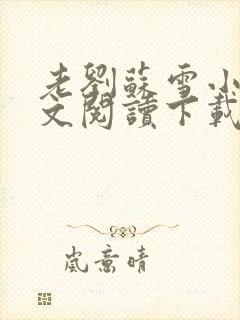 老劉蘇雪小
文閱讀下載
嵐意晴